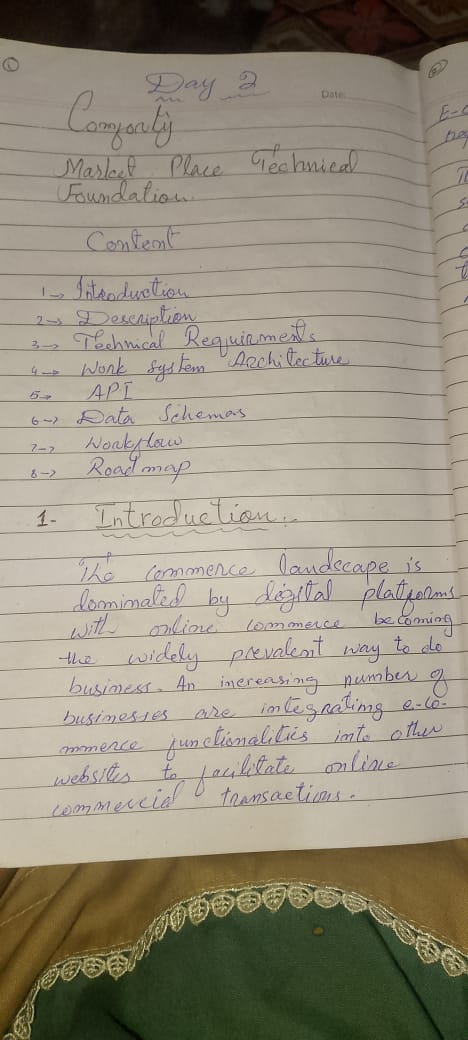 ①
Day 2
Date:
Comforty
Market Place Technical
Foundation.
Content
1→ Introduction
2→ Description
3→ Technical Requirments
4→ Work System Architecture
5→ API
6→ Data Schemas
7→ Workflow
8→ Road map
1- Introduction:-
The commerce landscape is
dominated by digital platforms
with online commerce becoming
the widely prevalent way to do
business. An increasing number of
businesses are integrating e-co-
mmerce functionalities into other
websites to facilitate online
commercial transactions.
②